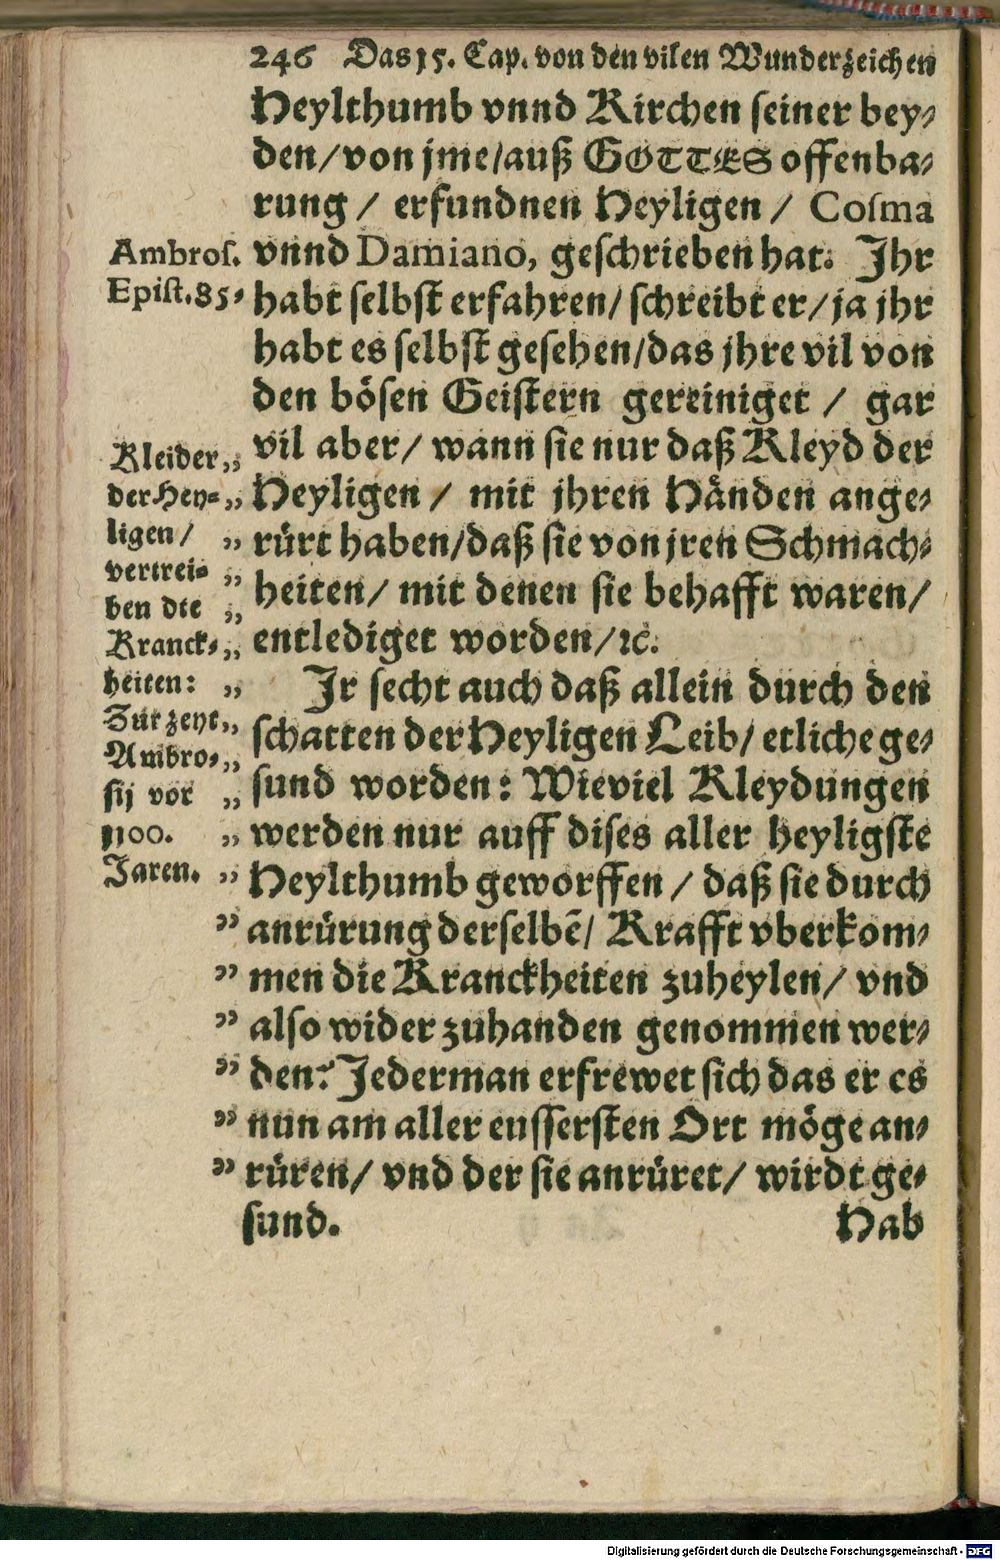 246 Das 15. Cap. von den vilen Wunderzeichen
Heylthumb vnnd Kirchen seiner bey⸗
den/von jme/auß GOTTES offenba⸗
rung / erfundnen Heyligen / Cosma
vnnd Damiano, geschrieben hat: Ihr
habt selbst erfahren/ schreibt er/ ja jhr
habt es selbst gesehen/das jhre vil von
den bösen Geistern gereiniget / gar
vil aber/ wann sie nur daß Kleyd der
Heyligen / mit jhren Händen ange⸗
rürt haben/daß sie von jren Schmach⸗
heiten/ mit denen sie behafft waren/
entlediget worden/ꝛc.
Jr secht auch daß allein durch den
schatten der Heyligen Leib/ etliche ge⸗
sund worden: Wieviel Kleydungen
werden nur auff dises aller heyligste
Heylthumb geworffen / daß sie durch
anrürung derselbẽ/ Krafft vberkom⸗
men die Kranckheiten zuheylen/ vnd
also wider zuhanden genommen wer⸗
den: Jederman erfrewet sich das er es
nun am aller eussersten Ort möge an⸗
rüren/ vnd der sie anrüret/ wirdt ge⸗
sund.
Hab
Ambros.
Epist.85.
Kleider „
der Hey⸗ „
ligen/ „
vertrei⸗ „
ben die „
Kranck⸗ „
heiten: „
Zur zeyt „
Ambro⸗ „
sij vor „
1100. „
Jaren. „
„
„
„
„
„
„
Digitalisierung gefördert durch die Deutsche Forschungsgemeinschaft - DFG